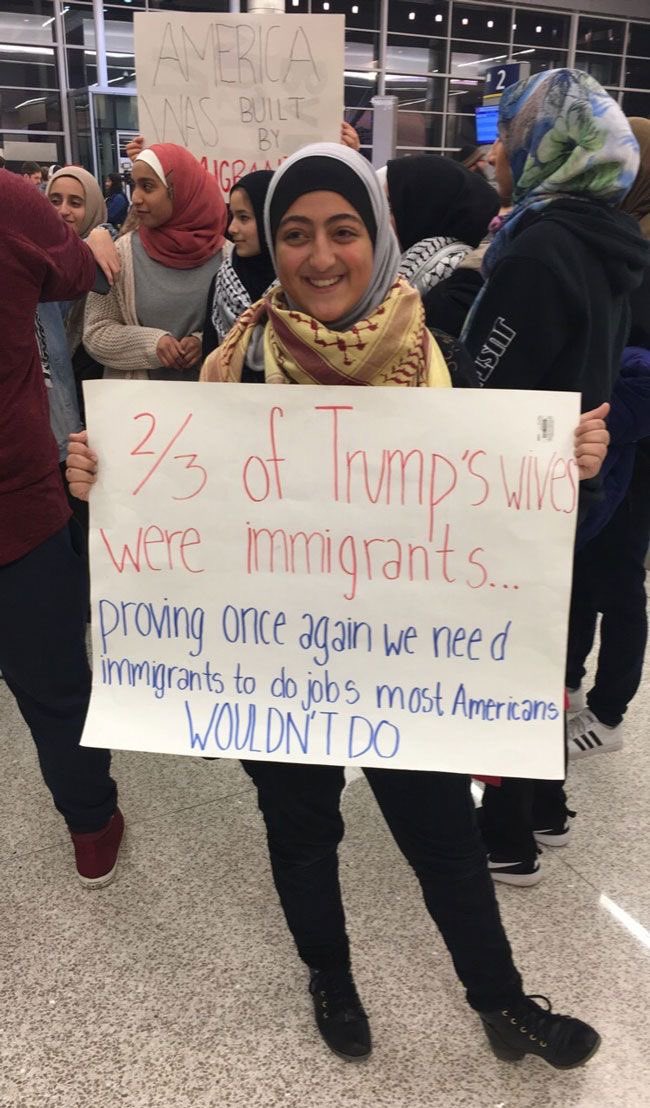 AMERICA
WAS BUILT
BY
2
2/3 of Trump's wives
were immigrants...
proving once again we need
immigrants to do jobs most Americans
WOULDN'T DO